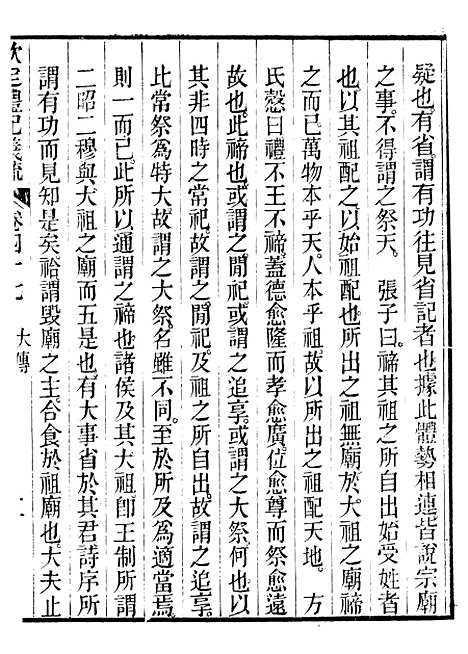 疑也有省謂有功往見省記者也據此體勢相連皆說宗廟
之事不得謂之祭天　張子曰禘其祖之所自出始受姓者
也以其祖配之以始祖配也所出之祖無廟於大祖之廟禘
之而已萬物本乎天人本乎祖故以所出之祖配天地　方
氏慤曰禮不王不禘蓋德愈隆而孝愈廣位愈尊而祭愈遠
故也此禘也或謂之閒祀或謂之追享或謂之大祭何也以
其非四時之常祀故謂之閒祀及祖之所自出故謂之追享
比常祭為特大故謂之大祭名雖不同至於所及為適當焉
則一而已此所以通謂之禘也諸侯及其大祖卽王制所謂
二昭二穆與大祖之廟而五是也有大事省於其君詩序所
謂有功而見知是矣祫謂毀廟之主合食於祖廟也大夫止
欽定禮記義疏　卷四十七　大傳